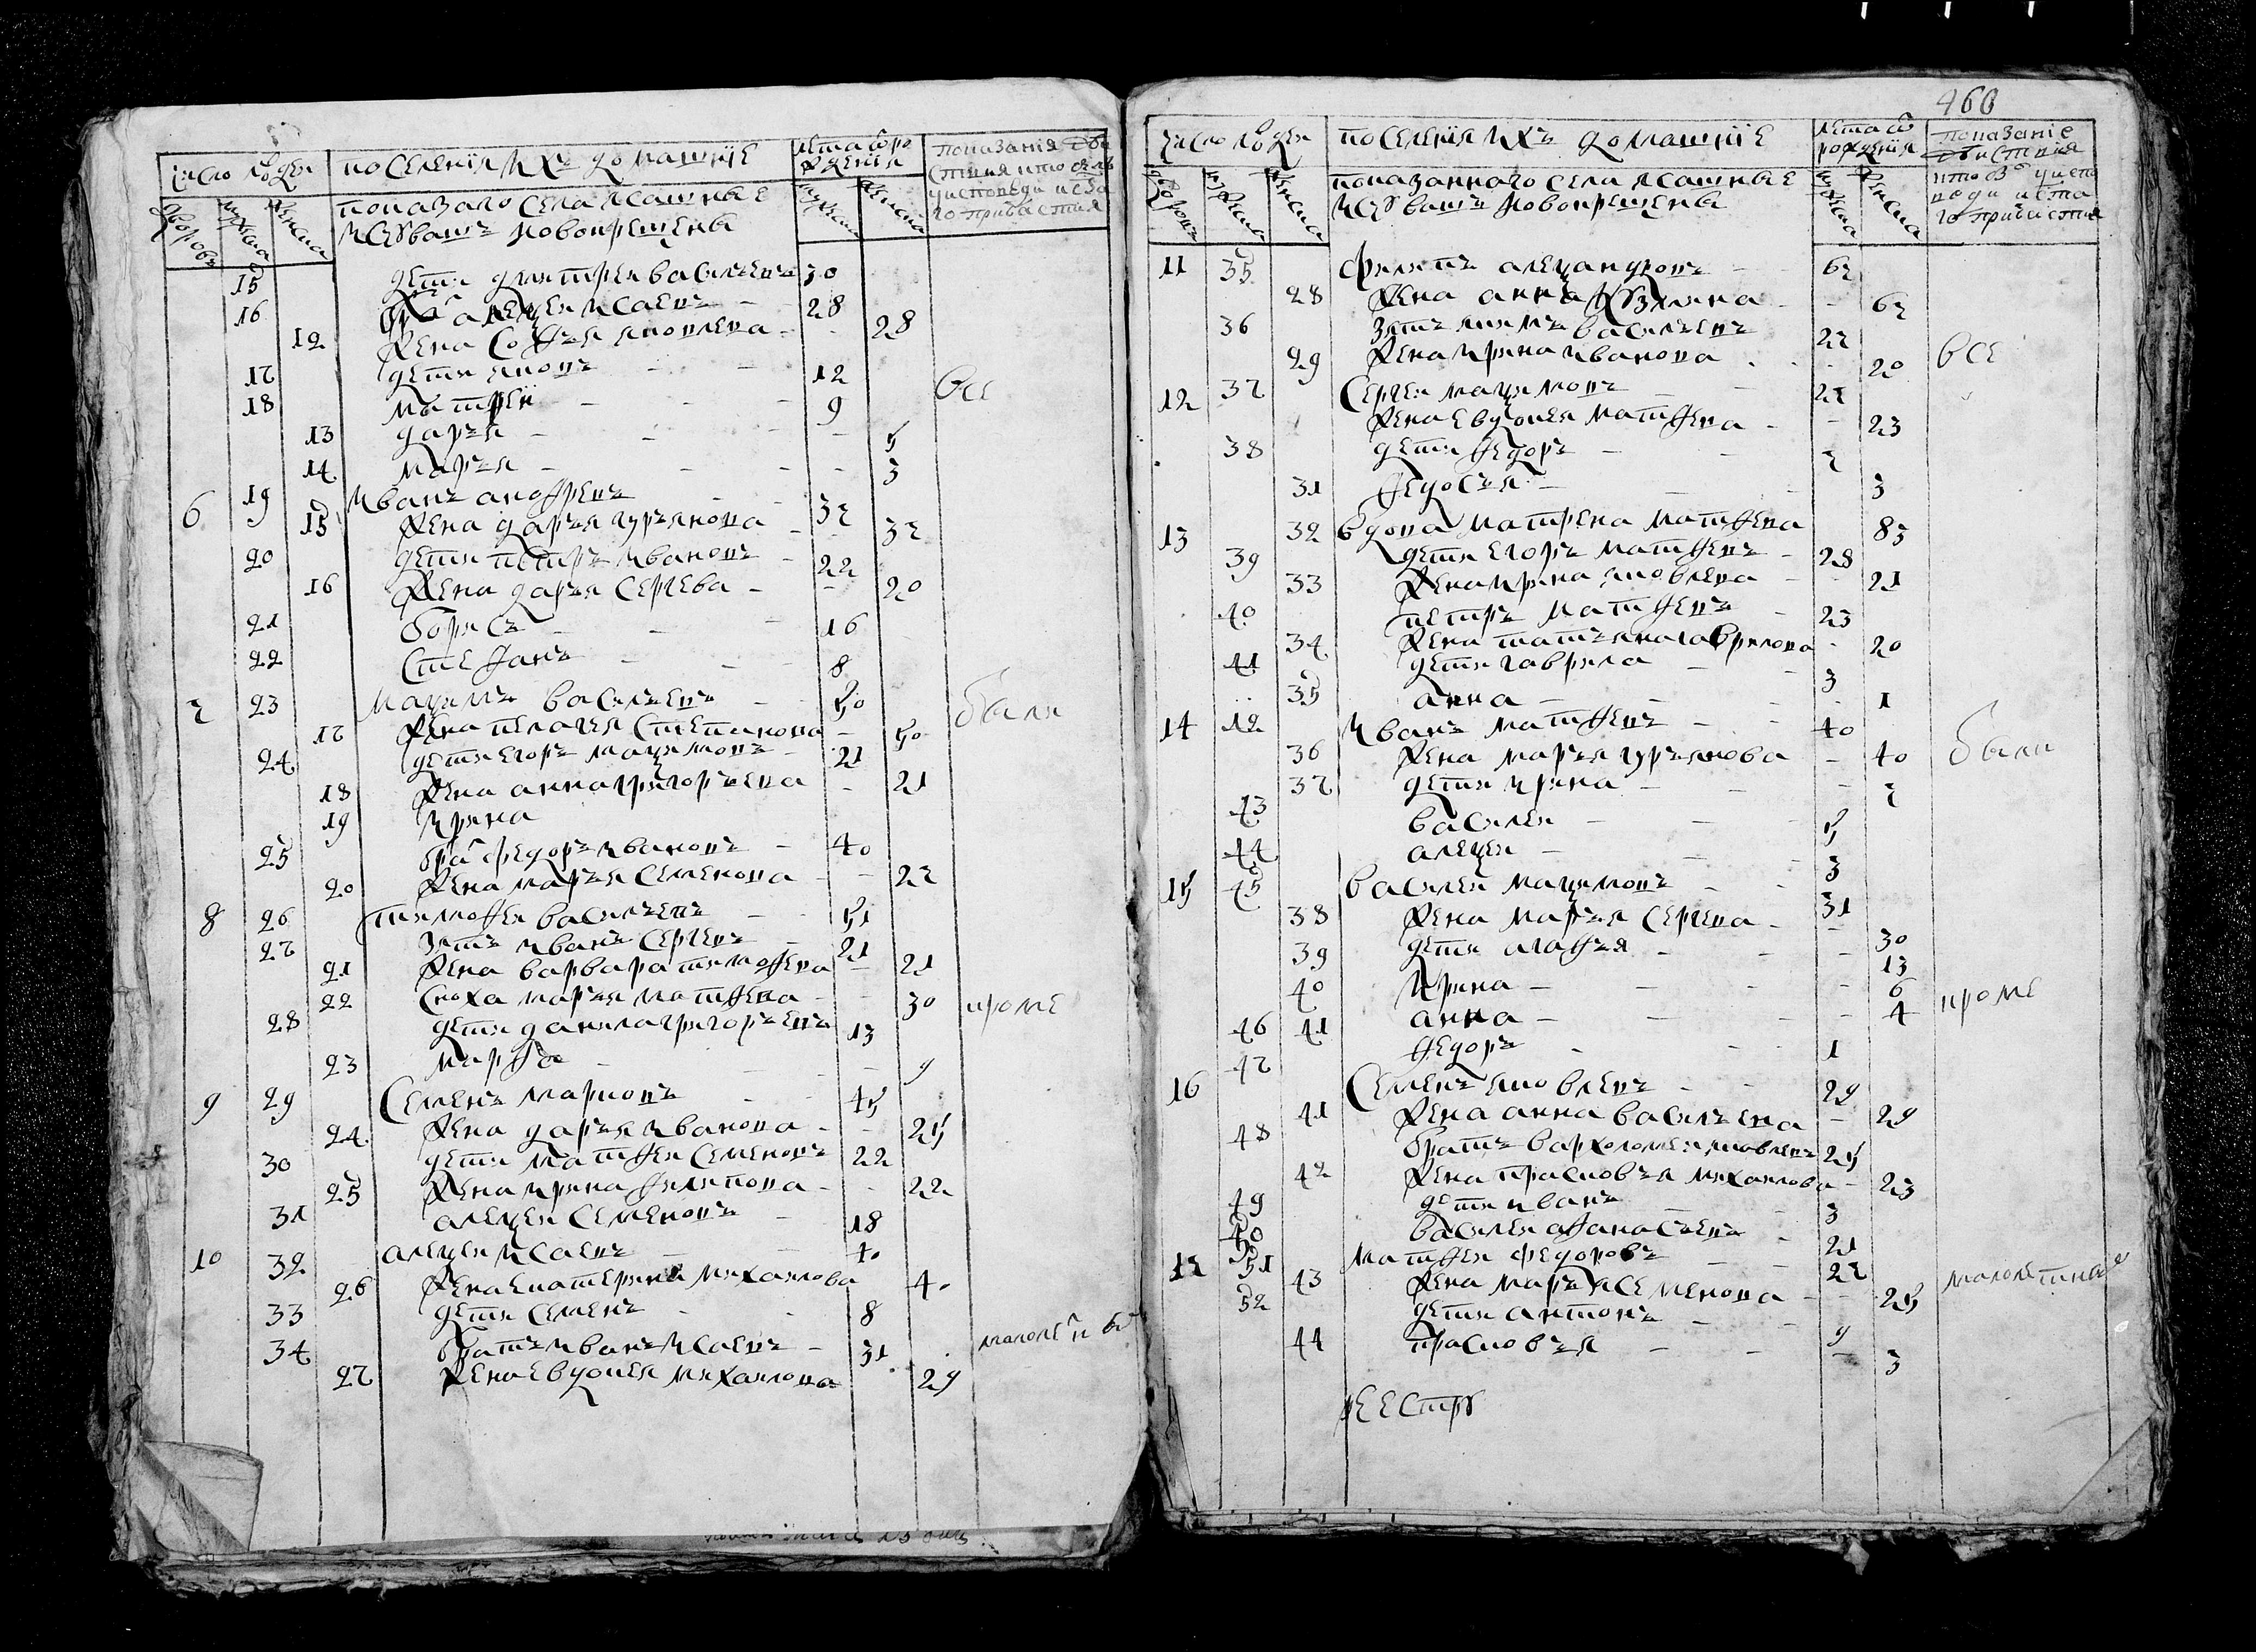 число людеи
поселения ихъ домашние
лета от рождения
показания действия кто былъ у исповеди и святаго причастия
дворовъ мужска женска
показаного села ясашные
ис чювашъ новокрещены
мужска женска
15 дети дмитреи васильевъ 30
16 брат алексеи исаевъ - 28
12 жена софья яковлева - 28
17 дети яковъ - 12
18 матфеи - 9
все
13 дарья - 5
14 марья - 3
6 19 иванъ анофревъ 37
15 жена дарья гурьянова - 37
20 дети петръ ивановъ - 22
16 жена дарья сергева - 20
21 борисъ - 16
22 стефанъ - 8
7 23 максимъ васильевъ - 50
были
17 жена пелагея степанова - 50
24 дети егоръ максимовъ - 21
18 жена анна григорьева - 21
19 ирина
25 брат федоръ ивановъ - 40
20 жена марья семенова - 27
8 26 тимофеи васильевъ - 51
27 зять иванъ сергевъ - 21
21 жена варвара тимофева - 21
22 сноха марья матфева - 30
кроме
28 дети данила григорьевъ 13
23 марфа - 9
9 29 семенъ марковъ 45
24 жена дарья иванова - 25
30 дети матфеи семеновъ 22
25 жена ирина филипова - 22
31 алексеи семеновъ - 18
10 32 алексеи исаевъ - 40
26 жена екатерина михаилова 40
33 дети семенъ - 8
34 братъ иванъ исаевъ - 31
27 жена евдокея михаилова 29
460
число людеи
поселения ихъ домашние
лета от рождения
показание действия кто был у исповеди и святаго причастия
дворовъ мужска женска
показанного села ясашные
ис чювашъ новокрещены
мужска женска
11 35 филипъ александровъ - 67
28 жена анна - 67
36 зять якимъ васильевъ 27
29 жена ирина иванова - 20
все
12 37 сергеи максимовъ - 27
жена евдокея матфева - 23
38 дети федоръ - 7
31 федосья - 3
13 32 вдова матрена матфева 85
39 дети егоръ матфевъ - 28
33 жена ирина яковлева - 21
40 петръ матфевъ - 23
34 жена татьяна гаврилова - 20
41 дети гаврила - 3
35 анна - 1
14 42 иванъ матфевъ - 40
36 жена марья гурьянова - 40
были
37 дети ирина - 7
43 василеи - 5
44 алексеи - 3
15 45 василеи максимовъ - 31
38 жена марья сергева - 30
39 дети агафья - 13
40 ирина - 6
41 анна - 4
кроме
46 федоръ - 1
16 47 семенъ яковлевъ - 29
41 жена анна васильева - 29
48 братъ вархоломеи яковлевъ 25
42 жена прасковья михаилова - 23
49 дети иванъ 3
50 василеи афанасьевъ - 21
17 51 матфеи федоровъ - 27
43 жена марья семенова - 25
малолетныхъ
52 дети антонъ - 9
44 прасковья - 3
реестръ